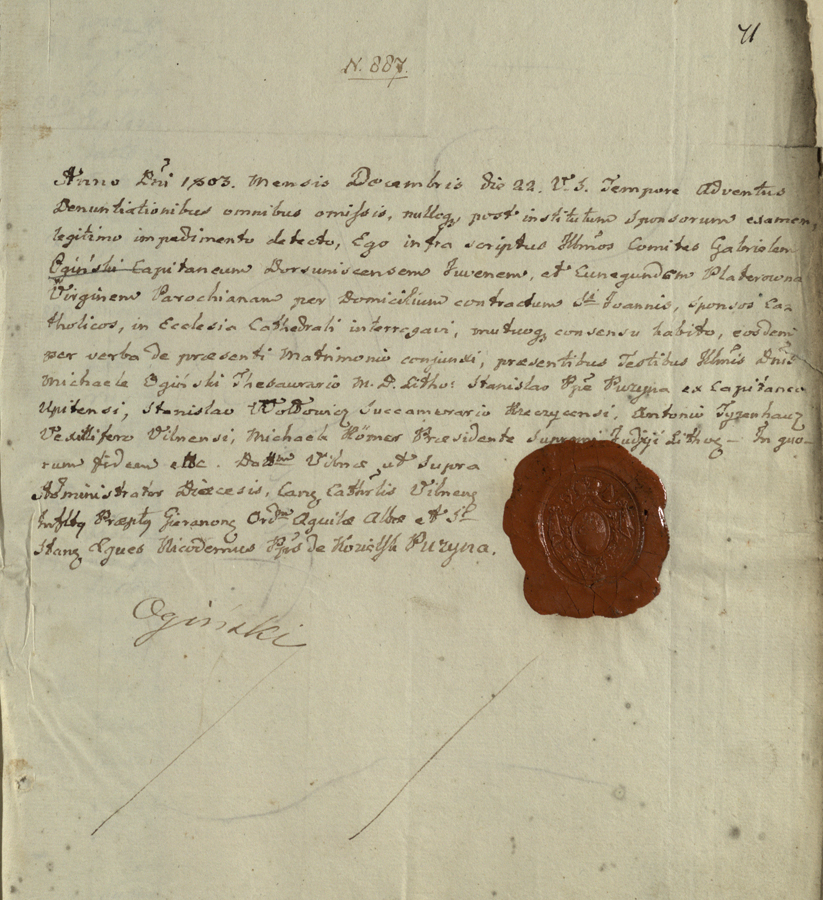 71
N. 887.
Anno Dni 1803. Mensis Decembris die 22. V. S. Tempore Adventus
Denuntiationibus omnibus omissis, nulloq post institutum sponsorum examen,
legitimo impedimento detecto, Ego infra scriptus Illmos Comites Gabrielem
Ogiński Capitaneum Dorsuniscensem Juvenem, et Cunegundem Platerowna
Virginem Parochianam per Domicilium contractum St Joannis, sponsos Ca-
tholicos, in Ecclesia Cathedrali interrogavi, mutuoq consensu habito, eosdem
per verba de præsenti Matrimonio conjunxi, præsentibus Testibus Illmis Dnis
Michaele Ogiński Thesaurario M. D. Litho: Stanislao Ppe Puzyna ex Capitaneo
Upitensi, Stanislao Wołłowicz Succamerario Rzeczycensi, Antonio Tyzenhauz
Vexillifero Vilnensi, Michaele Römer Præsidente Supremi Judyi Lithoq — In quo-
rum fidem etc. Dattum Vilnæ ut supra
Administrator Diæcesis, Canq Cathrlis Vilnenq
Inflltq Præptq Gieranonq Ordm Aquilæ Albæ et St
Stanq Eques Nicodemus Pps de Kozielsk Puzyna.
Ogiński